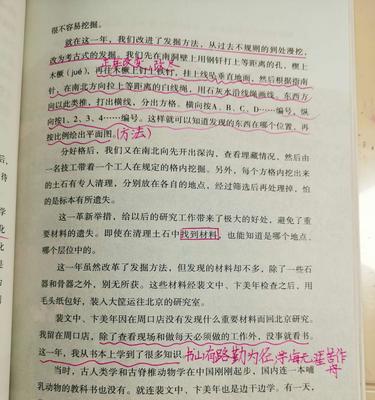 很不容易挖掘。
就在这一年，我们改进了发掘方法，从过去不规则的到处漫挖，
改为考古式的发掘。我们先在南洞壁上用钢钎打上等距离的孔，楔上
木橛（jué），再往木橛上钉小铁钉，挂上线坠垂直地面，然后根据指南
针，在北方向拉上等距离的白线绳，用石灰水沿线绳画线。东西方
向以此类推，打出横线，分出方格。横向按A、B、C、D……编号，纵
向按1、2、3、4……编号。这样就可以知道发现的东西在哪个位置，再
按比例绘出平面图。(方法)
分好格后，我们又在南北向先开出深沟，查看埋藏情况，然后由
一名技工带着一个工人在规定的格内挖掘。另外，每个方格内挖出来
的土石有专人清理，分别放在各自的地点，经过筛选后再处理掉，怕
的是标本有所遗失。
这一革新举措，给以后的研究工作带来了极大的好处，避免了重
要材料的遗失。即使在清理土石中找到材料，也能知道是哪个地点、
哪个层位中的。
这一年虽然改革了发掘方法，但发现的材料却不多，除了一些石
器和骨器之外，别无所获。这些材料经裴文中、卞美年检查之后，用
毛头纸包好，装入大筐运往北京的研究室。
裴文中、卞美年因在周口店没有发现什么重要材料而回北京研究。
我留在周口店，除了查看现场和做每天必须做的工作外，没事就看书。
这一年，我从书本上学到了很多知识。书山有路勤为径，学海无涯苦作
舟
当时，古人类学和古脊椎动物学在中国刚刚起步，国内连一本哺
乳动物的教科书也没有。就连裴文中、卞美年也是边干边学。有一天，